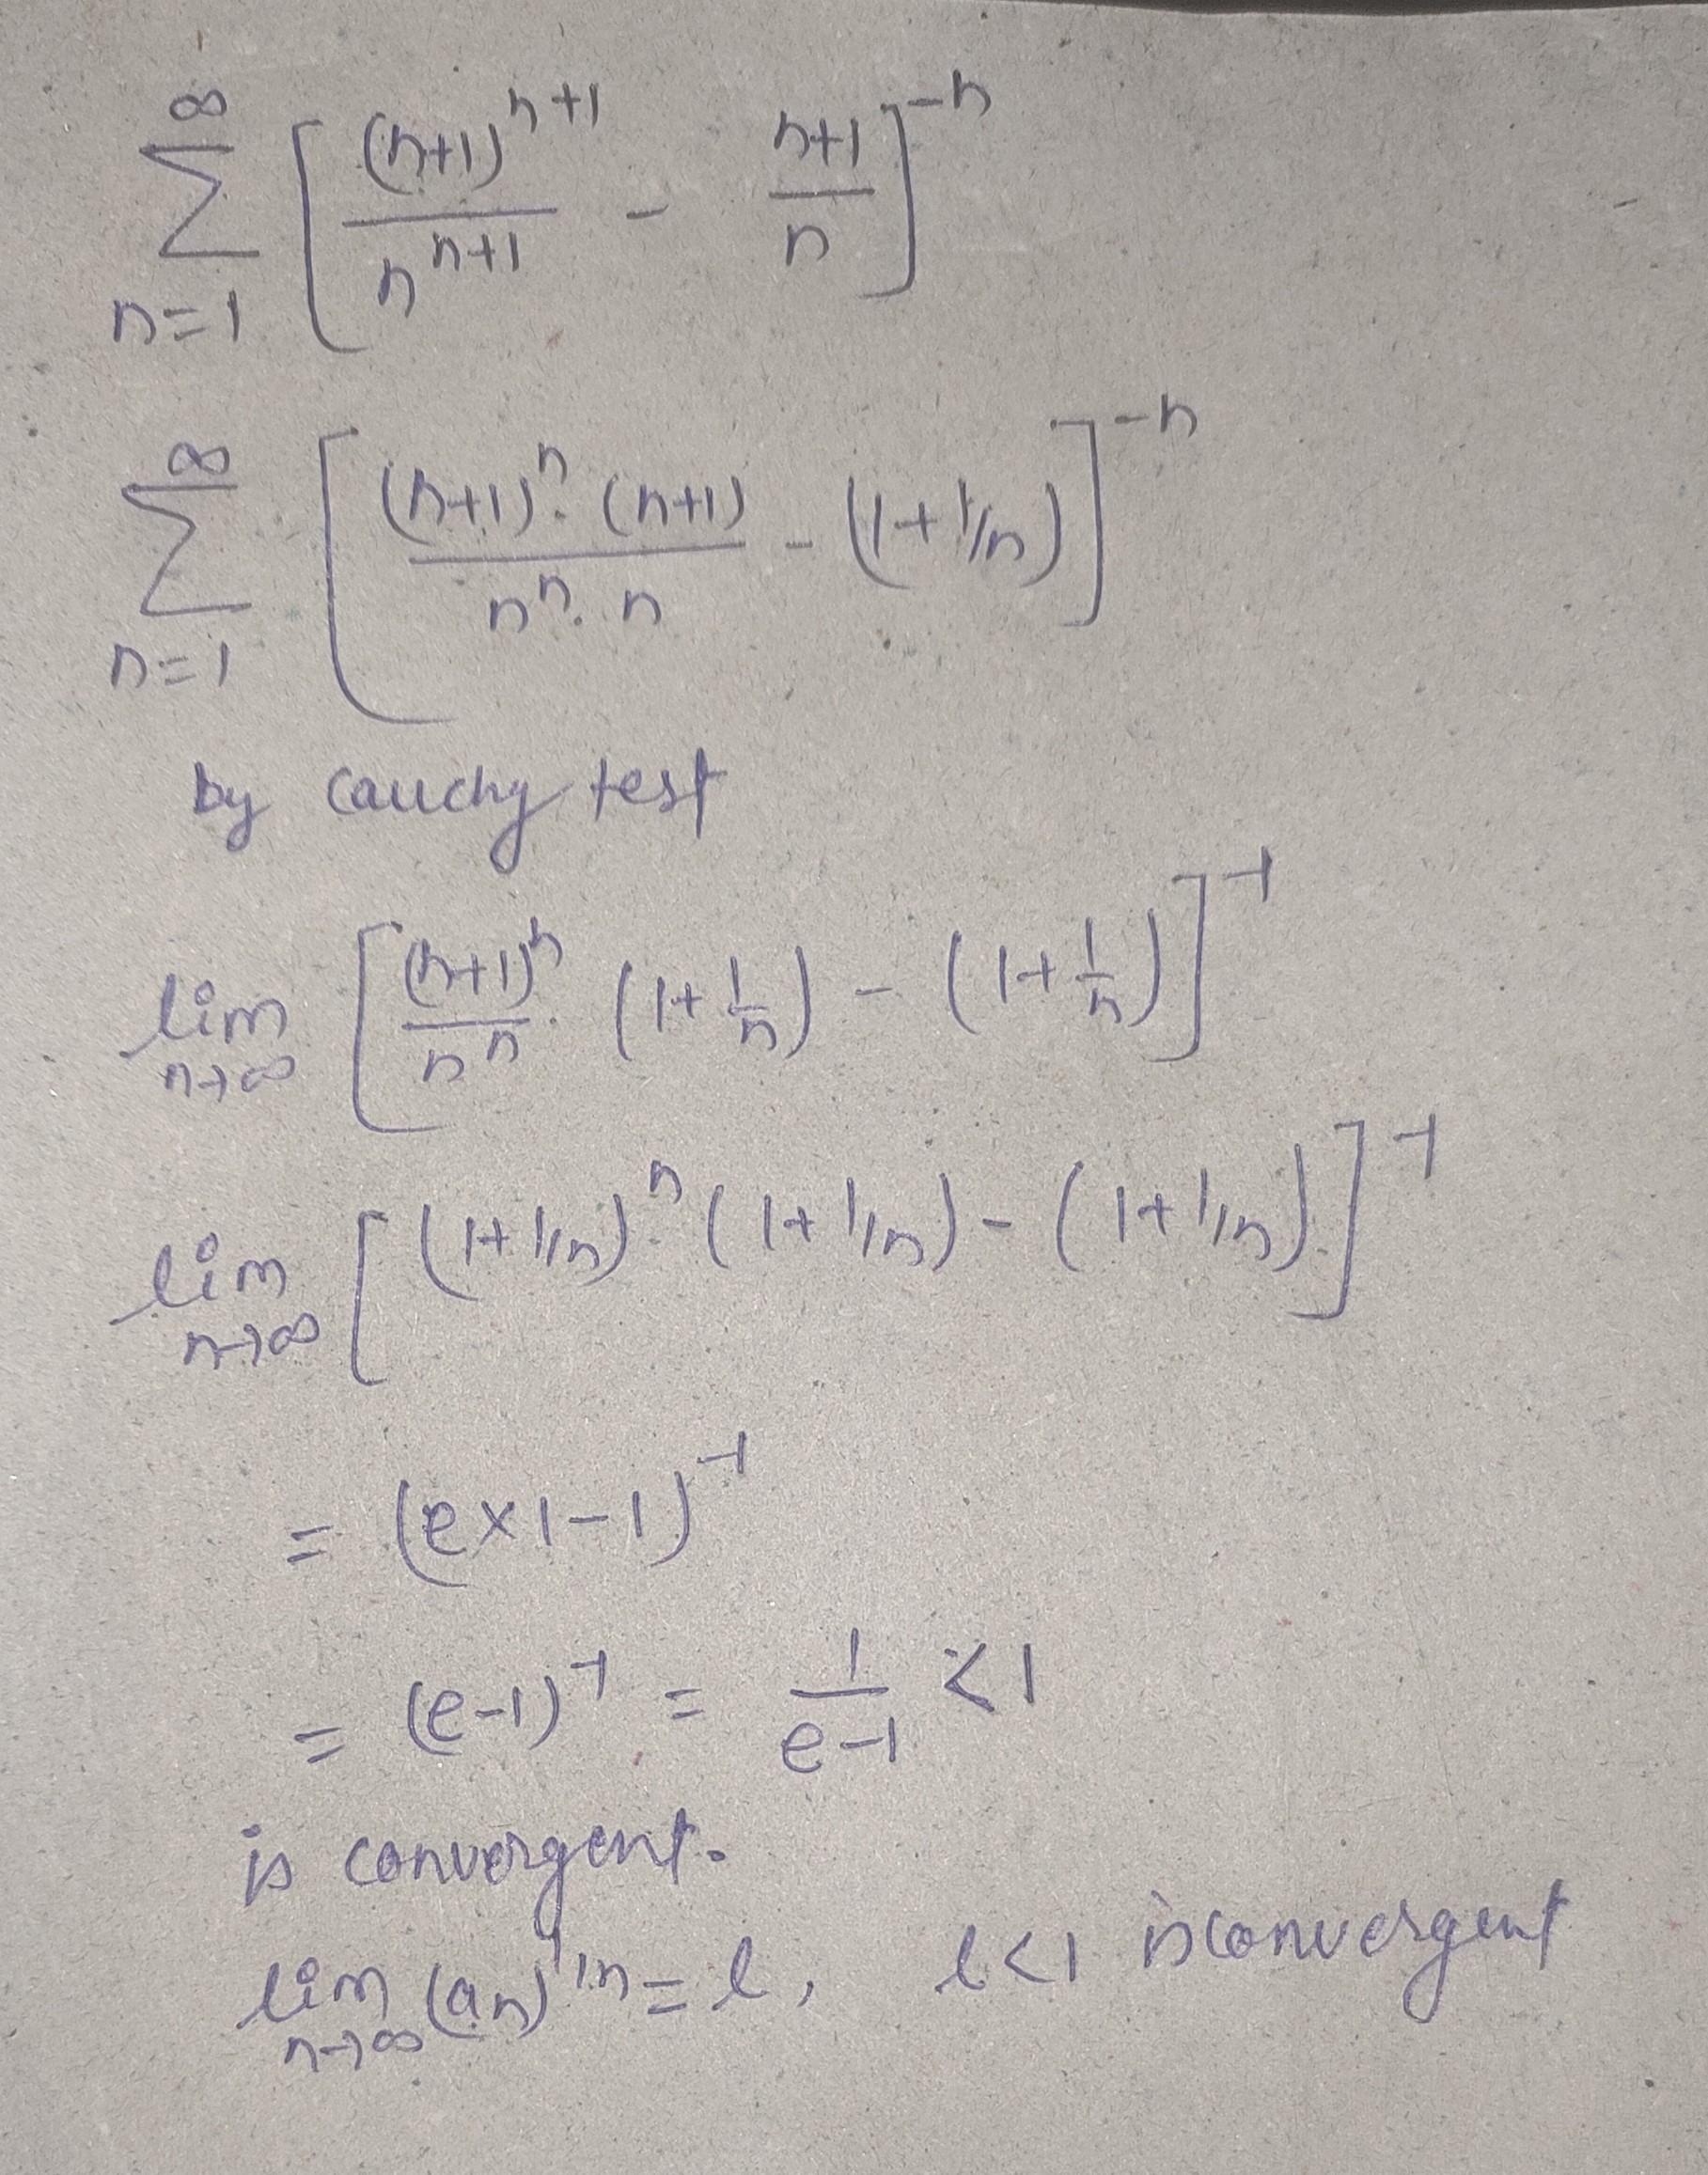 ∞∑n=1 [ (n+1)^{n+1} / n^{n+1} - n+1 / n ]^{-n}
∞∑n=1 [ (n+1)^n . (n+1) / n^n . n - (1+1/n) ]^{-n}
by cauchy test
lim n→∞ [ (n+1)^n / n^n . (1+ 1/n) - (1+ 1/n) ]^{-1}
lim n→∞ [ (1+1/n)^n . (1+1/n) - (1+1/n) ]^{-1}
= (e×1-1)^{-1}
= (e-1)^{-1} = 1 / e-1 < 1
is convergent.
lim n→∞ (an)^{1/n} = l, l<1 is convergent